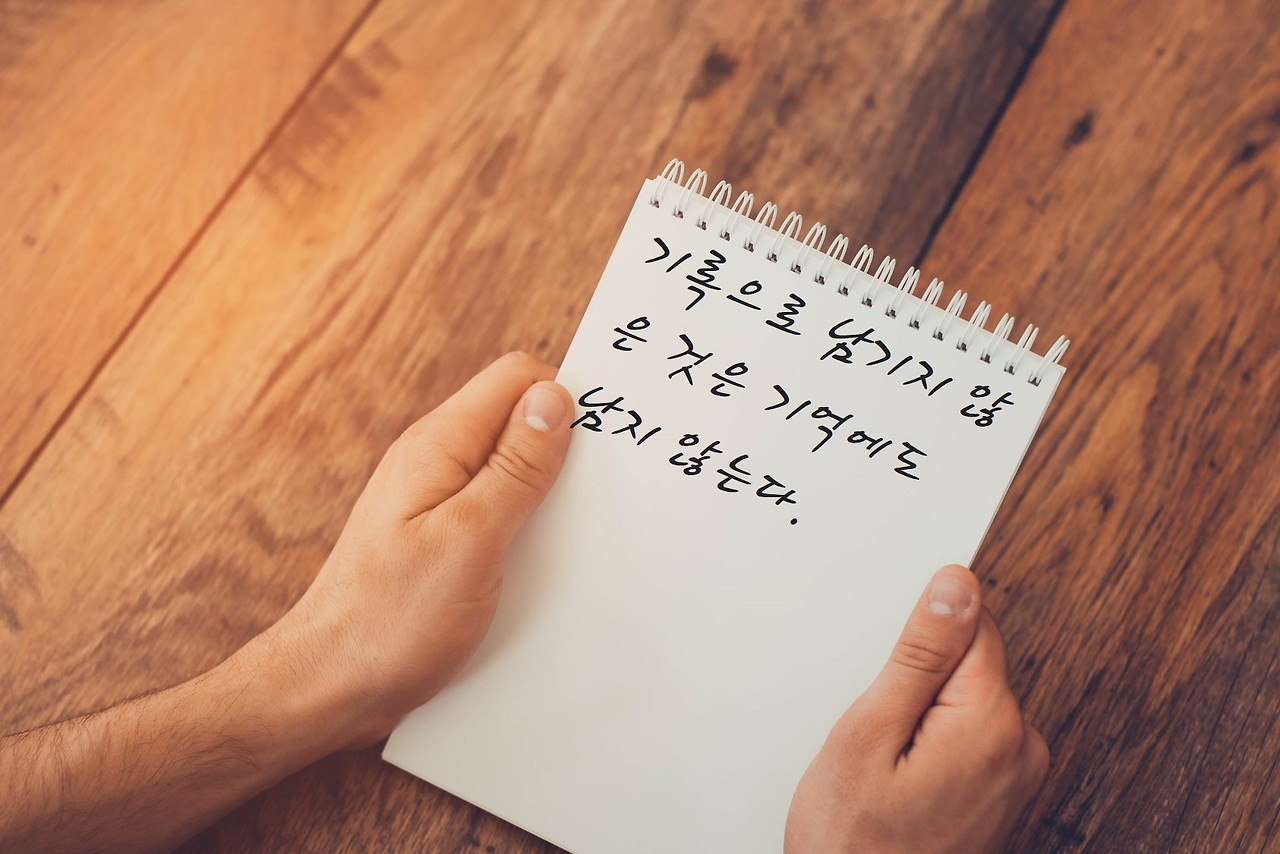 기록으로 남기지 않
은 것은 기억에도
남지 않는다.